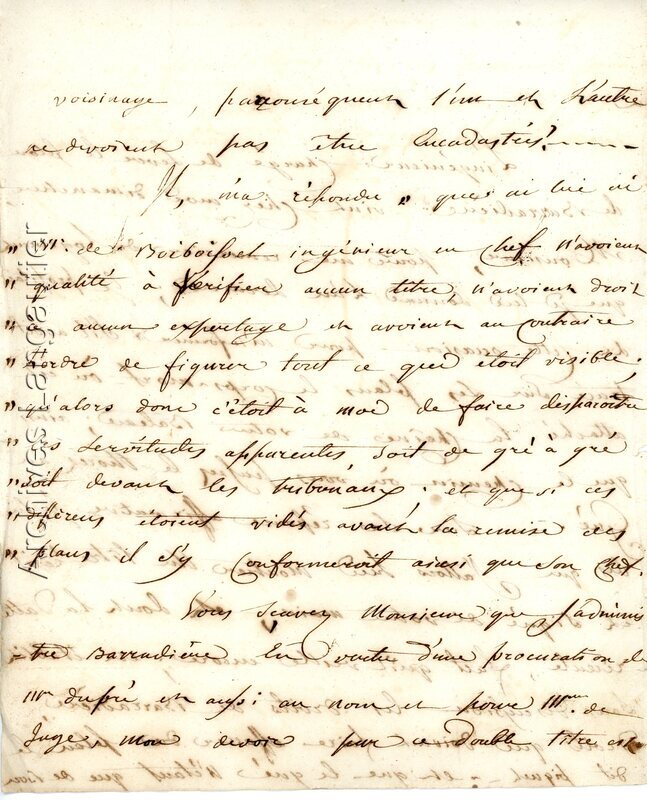 voisinage, parconséquent l'un et L'autre
ne devoient pas être Encadastrés.
Il, m'a répondu, que ni lui ni
" Mr. de Boiboissel ingénieur en Chef n'avoient
" qualité à vérifier aucun titre, n'avoient droit
" à aucun expertage et avoient au Contraire
" L'ordre de figurer tout ce qui étoit visible;
" qu'alors donc c'étoit à moi de faire disparoître
" Les servitudes apparentes soit de gré à gré
" soit devant les tribunaux; et que si ces
" diférens étoient vidés avant la remise des
" plans il s'y Conformeroit ainsi que son Chef.
Vous scavez Monsieur que J'adminis
= tre Barradière En vertu d'une procuration de
Mr dupré et aussi au nom et pour Mme. de
Juge, mon devoir par ce Double titre est
Archives-sabatier